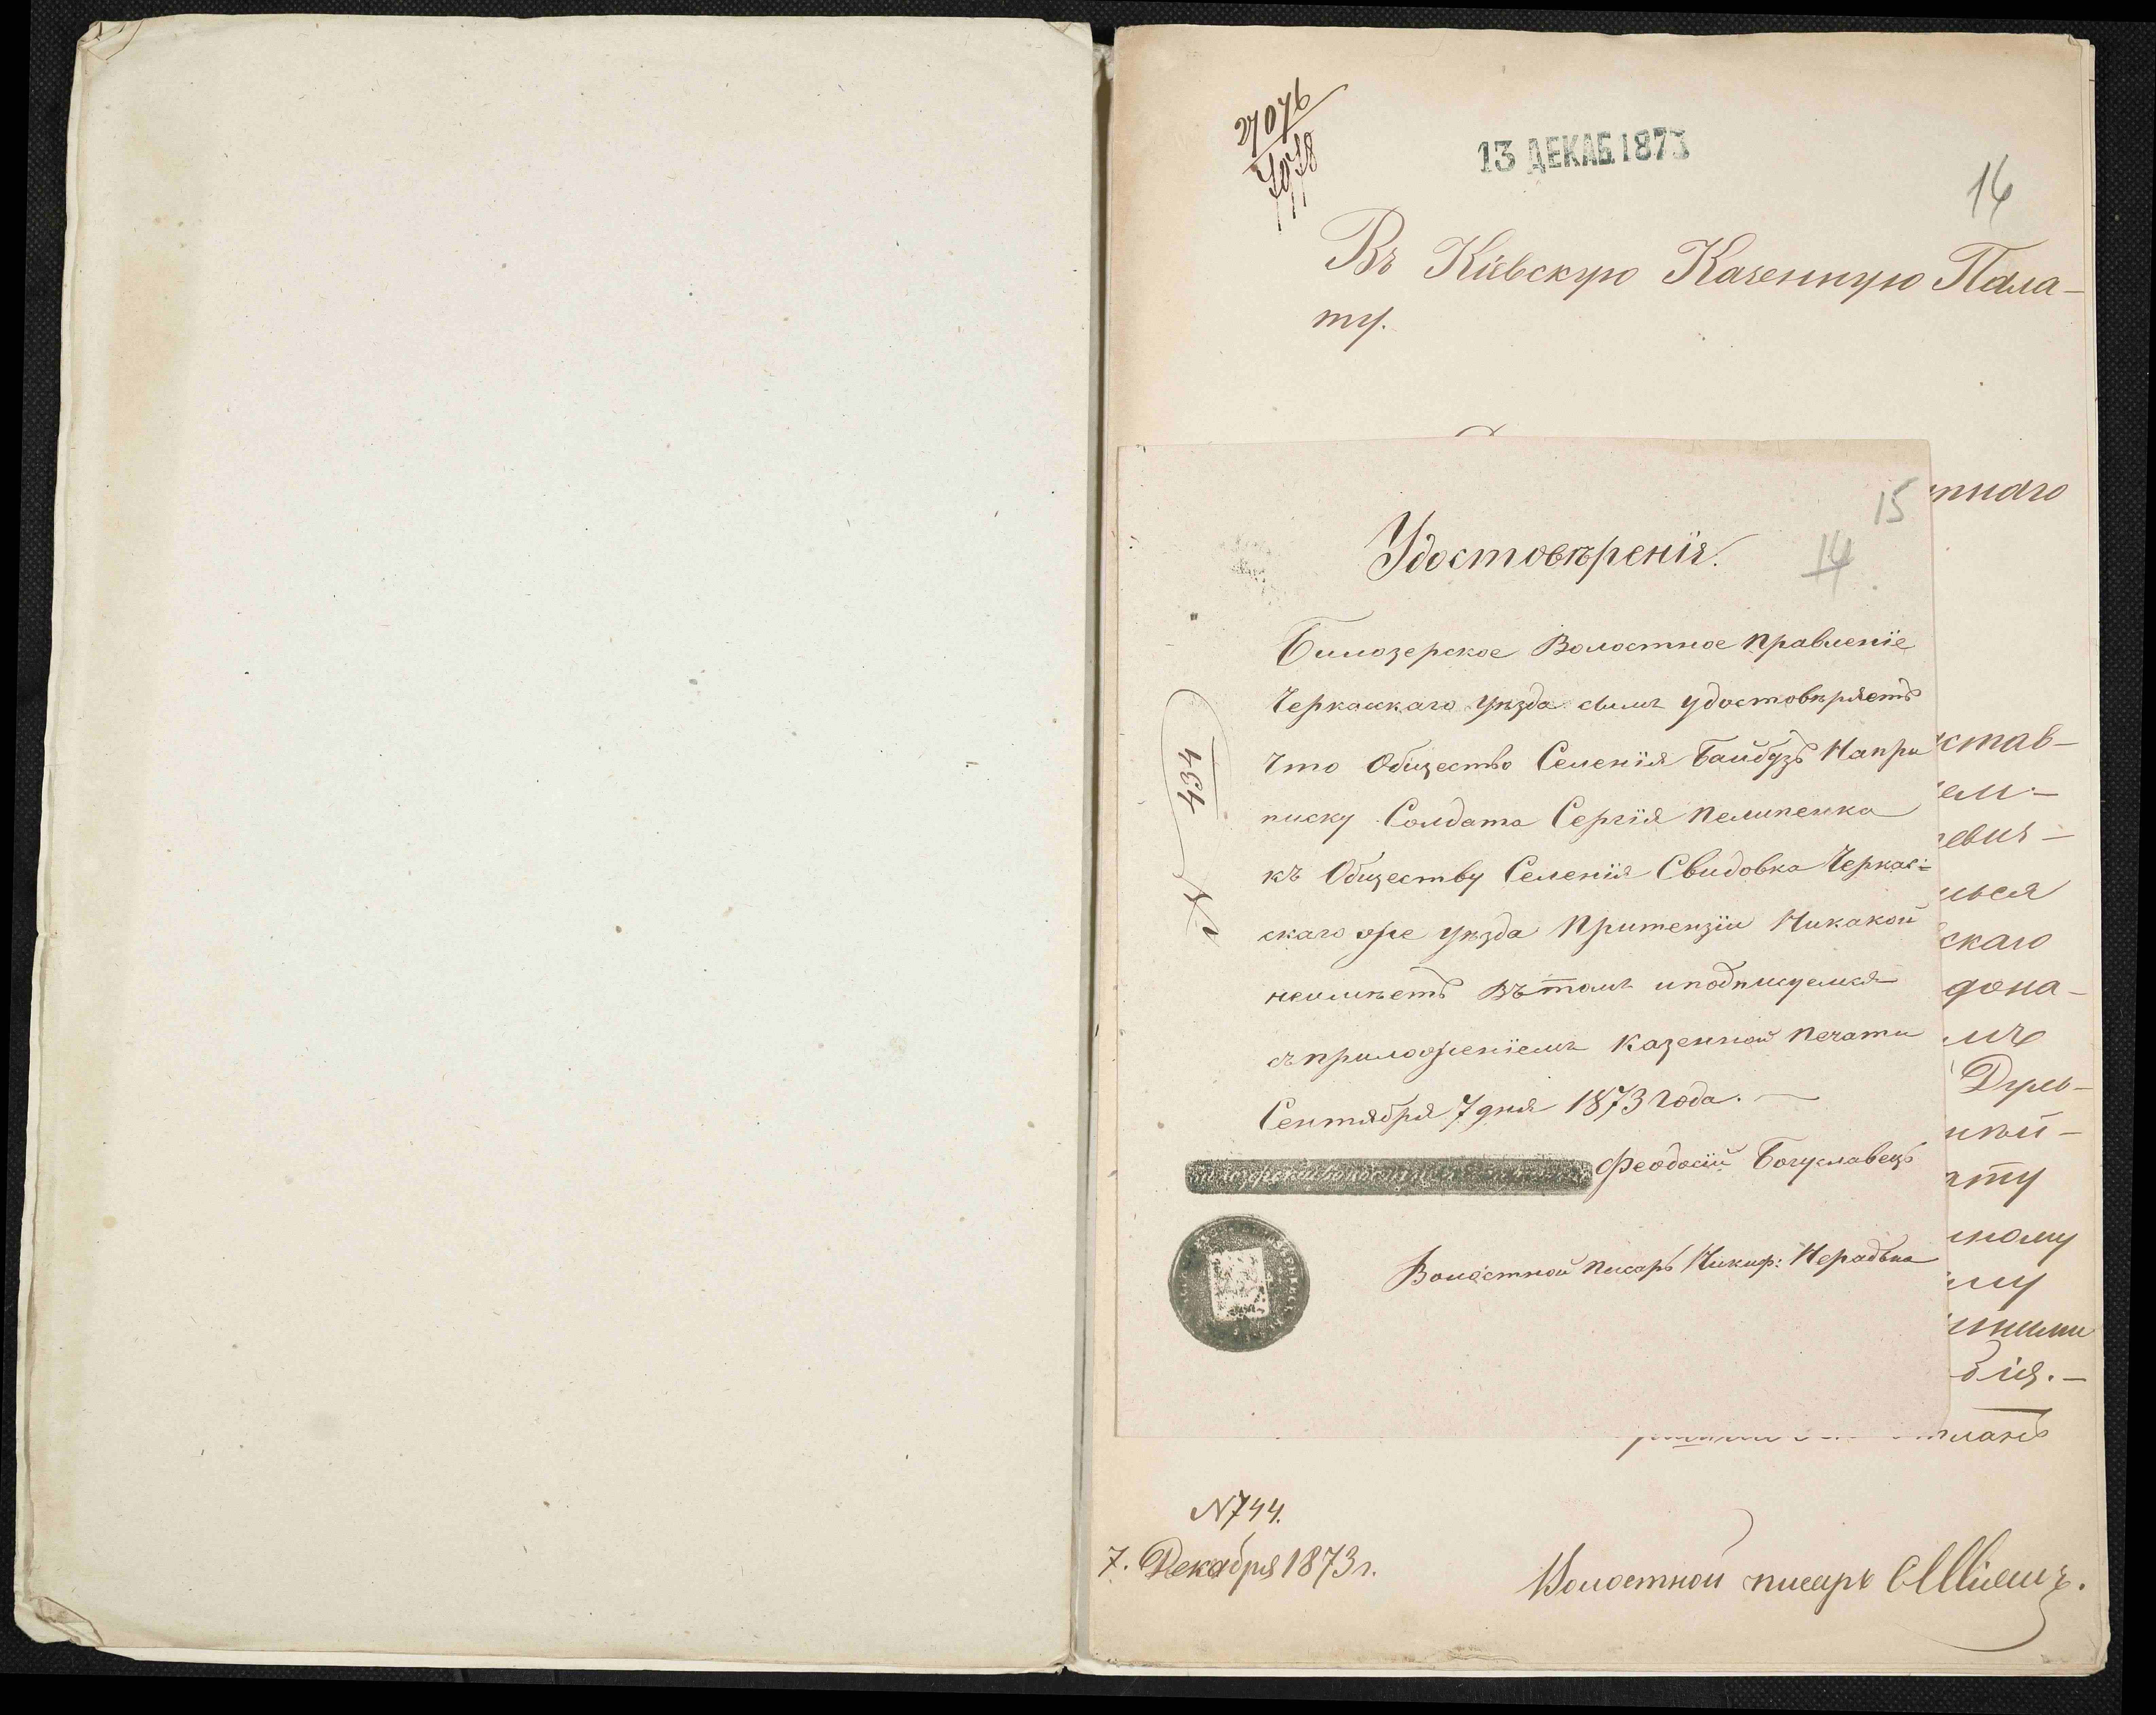 27076
7078
13 ДЕКАБ. 1873
16
Въ Кіевскую Казенную Пала-
ту.
15
14
Удостовѣренія.
Билозерское Волостное правленіе
Черкаскаго уѣзда симъ удостовѣряетъ
Что Общество Селенія Байбузъ Напри
писку Солдата Сергія Пелипенка
къ Обществу Селенія Свидовка Черкас=
скаго же уѣзда Притензіи Никакой
неимѣетъ Въ томъ иподписуемся
съприложеніемъ Казенной Печати
Сентября 7 дня 1873 года. —
Феодосій Богуславецъ
Волостной Писарь Никиф:
№ 434
скаго
дона-
ату
N 744.
7. Декабря 1873 г.
Волостной писарь